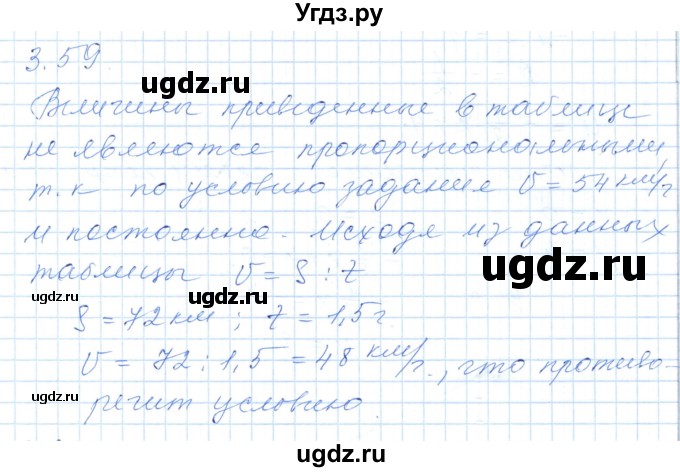 Угдз.ру
3.59
ugdz.ru
Величины приведенные в таблице
не являются пропорциональными,
т.к по условию задания V = 54 км/ч
и постоянно. Исходя из данных
ugdz.ru ugdz.ru
таблицы V = S : t
ugdz.ru ugdz.ru
S = 72 км ; t = 1,5 ч
V = 72 : 1,5 = 48 км/ч., что противо-
ugdz.ru ugdz.ru
речит условию.